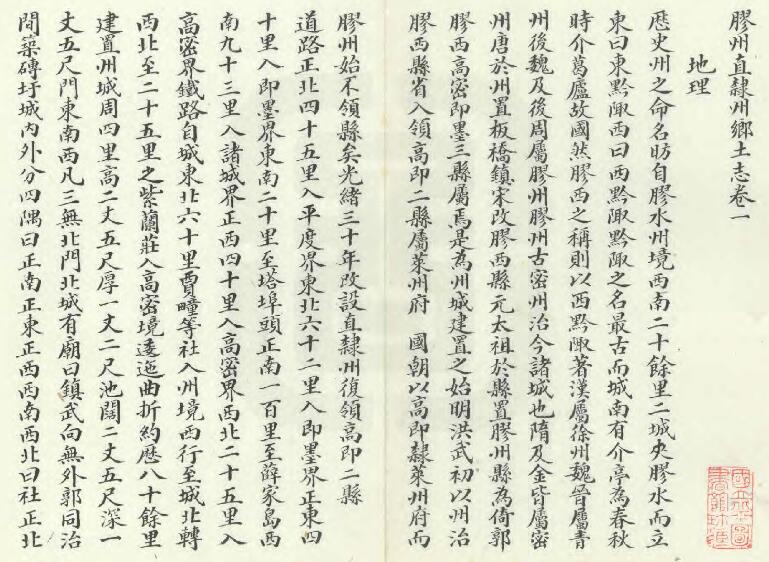 膠州直隸州鄉土志卷一
地理
歷史州之命名昉自膠水州境西南二十餘里二城夾膠水而立
東曰東黔陬西曰西黔陬黔陬之名最古而城南有介亭為春秋
時介葛廬故國然膠西之稱則以西黔陬著漢屬徐州魏晉屬青
州後魏及後周屬膠州膠州古密州治今諸城也隋及金皆屬密
州唐於州置板橋鎮宋改膠西縣元太祖於縣置膠州縣為倚郭
膠西高密即墨三縣屬焉是為州城建置之始明洪武初以州治
膠西縣省入領高即二縣屬萊州府　國朝以高即隸萊州府而
膠州始不領縣矣光緒三十年改設直隸州復領高即二縣
道路正北四十五里入平度界東北六十二里入即墨界正東四
十里入即墨界東南二十里至塔埠頭正南一百里至薛家島西
南九十三里入諸城界正西四十里入高密界西北二十五里入
高密界鐵路自城東北六十里賈疃等社入州境西行至城北轉
西北至二十五里之紫蘭莊入高密境逶迤曲折約歷八十餘里
建置州城周四里高二丈五尺厚一丈二尺池闊二丈五尺深一
丈五尺門東南西凡三無北門北城有廟曰鎮武向無外郭同治
間築磚圩城內外分四隅曰正南正東正西西南西北曰社正北